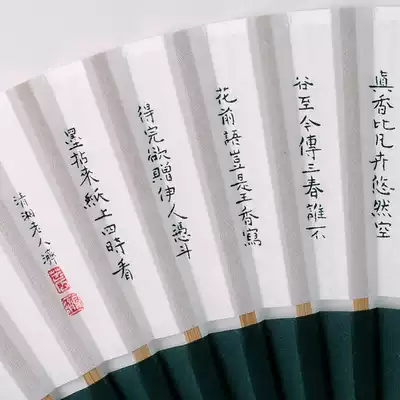 眞香比凡卉悠然空
谷至今傳三春誰不
花前語豈是王香寫
得完欲贈伊人憑斗
墨拈來紙上四時看
清湘老人濟